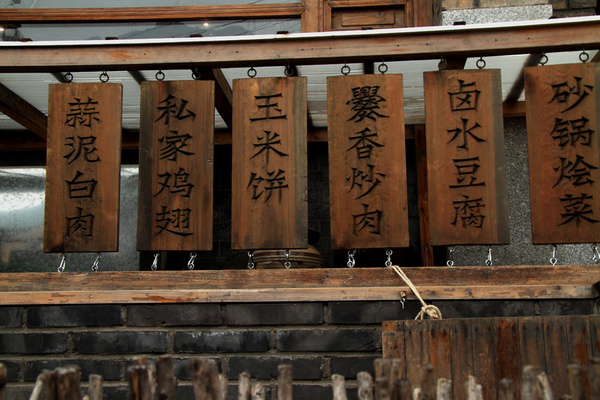 蒜泥白肉
私家鸡翅
玉米饼
爨香炒肉
卤水豆腐
砂锅烩菜